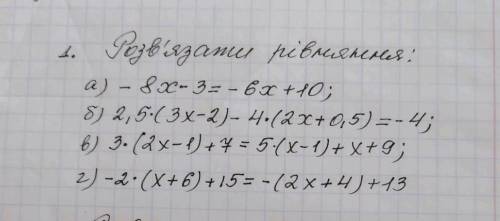 1. Розв'язати рівняння:
а) - 8x - 3 = - 6x + 10;
б) 2,5·(3x-2) - 4·(2x+0,5) = -4;
в) 3·(2x-1)+7 = 5·(x-1)+x+9;
г) -2·(x+6)+15 = -(2x+4)+13